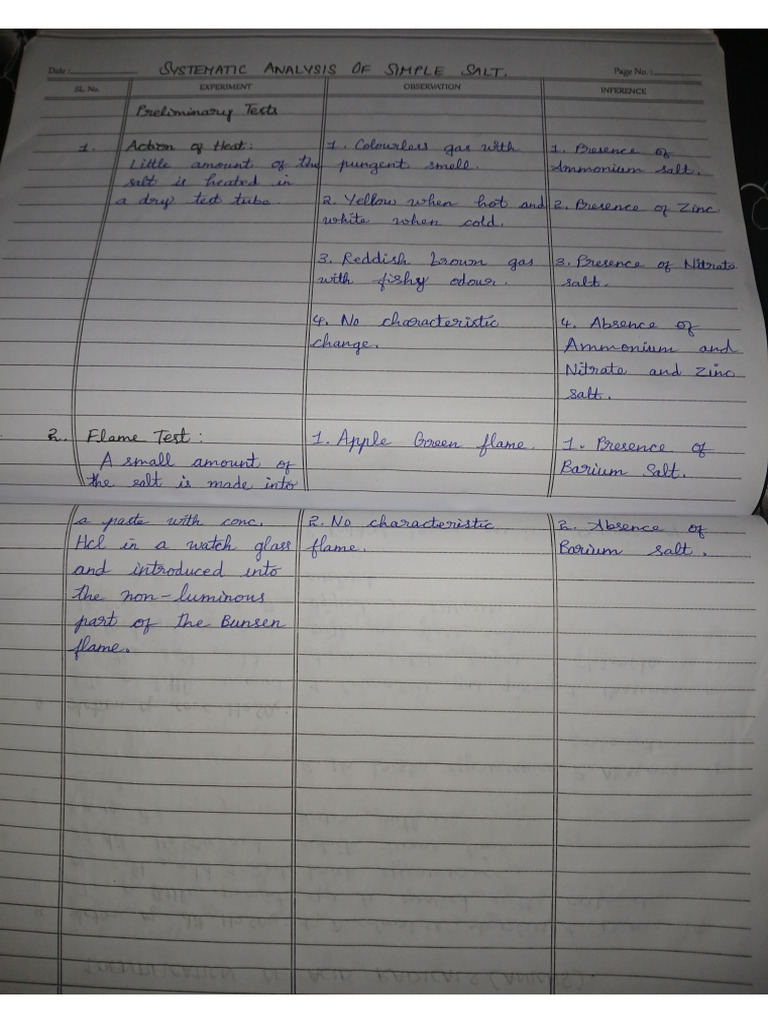 SYSTEMATIC ANALYSIS OF SIMPLE SALT.
Date : Page No. :
SL. No. EXPERIMENT OBSERVATION INFERENCE
Preliminary Tests
1. Action of Heat:
Little amount of the
salt is heated in
a dry test tube.
1. Colourless gas with
pungent smell.
1. Presence of
Ammonium salt.
2. Yellow when hot and
white when cold.
2. Presence of Zinc
3. Reddish brown gas
with fishy odour.
3. Presence of Nitrate
salt.
4. No characteristic
change.
4. Absence of
Ammonium and
Nitrate and Zinc
salt.
2. Flame Test :
A small amount of
the salt is made into
a paste with conc.
Hcl in a watch glass
and introduced into
the non-luminous
part of the Bunsen
flame.
1. Apple Green flame.
1. Presence of
Barium Salt.
2. No characteristic
flame.
2. Absence of
Barium salt.